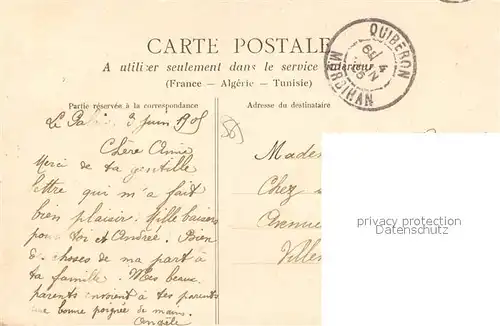 CARTE POSTALE
A utiliser seulement dans le service intérieur
(France - Algérie - Tunisie)
Partie réservée à la correspondance
Adresse du destinataire
QUIBERON
4
JUIN
05
MORBIHAN
Le Palais 3 Juin 1905
Chère Amie
Merci de ta gentille
lettre qui m'a fait
bien plaisir. Mille baisers
pour toi et Andrée. Bien
des choses de ma part à
ta famille. Mes beaux
parents envoient à tes parents
une bonne poignée de mains.
Angèle
Chez
Avenue
privacy protection
Datenschutz